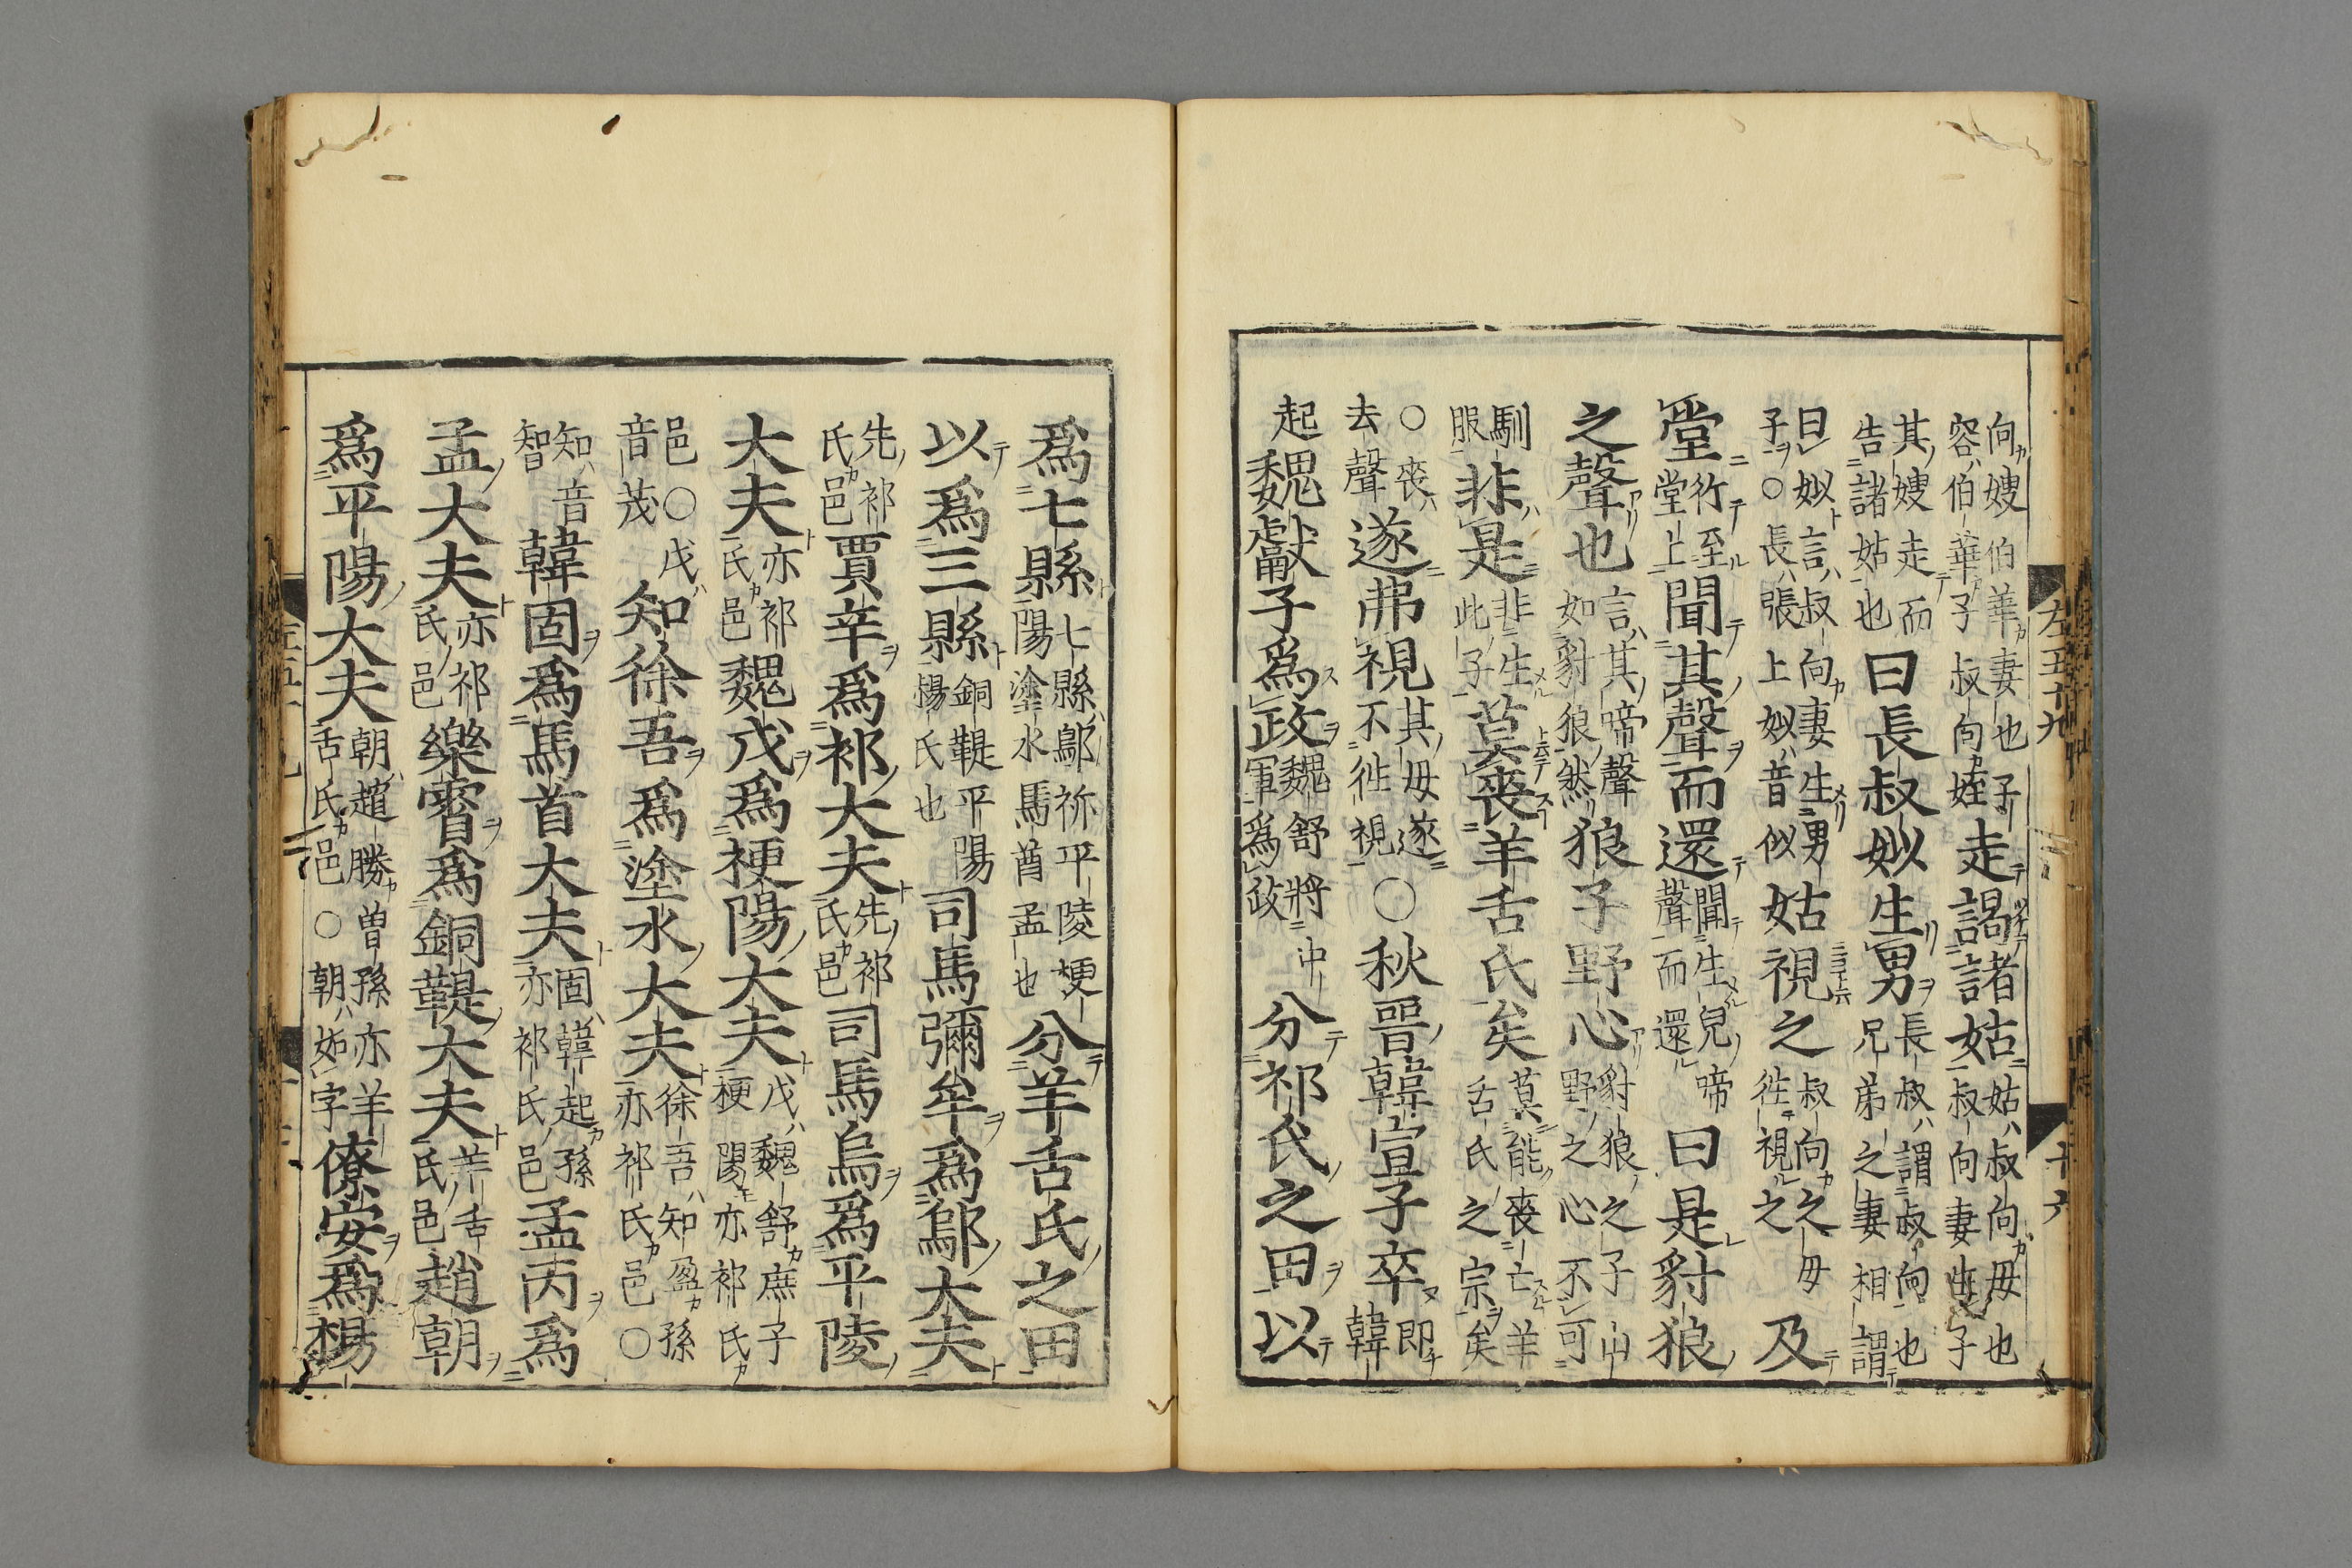 向嫂伯華妻也子容伯華子叔向姪走謁諸姑姑叔向母也叔向妻生子
其嫂走而告諸姑也曰長叔姒生男長叔謂叔向也兄弟之妻相謂
曰姒言叔向妻生男子○長張上姒音似姑視之叔向之母往視之及
堂行至堂上聞其聲而還聞生兒啼聲而還曰是豺狼
之聲也言其啼聲如豺狼然狼子野心豺狼之子山野之心不可
馴服非是非生此子莫喪羊舌氏矣莫能喪亡羊舌氏之宗矣
○喪去聲遂弗視其母遂不徃視○秋晉韓宣子卒即韓
起魏獻子爲政魏舒將中軍爲政分祁氏之田以
左五十九
十六
爲七縣七縣鄔祁平陵梗陽塗水馬首孟也分羊舌氏之田
以爲三縣銅鞮平陽楊氏也司馬彌牟爲鄔大夫
先祁氏邑賈辛爲祁大夫先祁氏邑司馬烏爲平陵
大夫亦祁氏邑魏戊爲梗陽大夫戊魏舒庶子梗陽亦祁氏
邑○戊音茂知徐吾爲塗水大夫徐吾知盈孫亦祁氏邑○
知音智韓固爲馬首大夫固韓起孫亦祁氏邑孟丙爲
孟大夫亦祁氏邑樂霄爲銅鞮大夫羊舌氏邑趙朝
爲平陽大夫朝趙勝曽孫亦羊舌氏邑○朝如字僚安爲楊